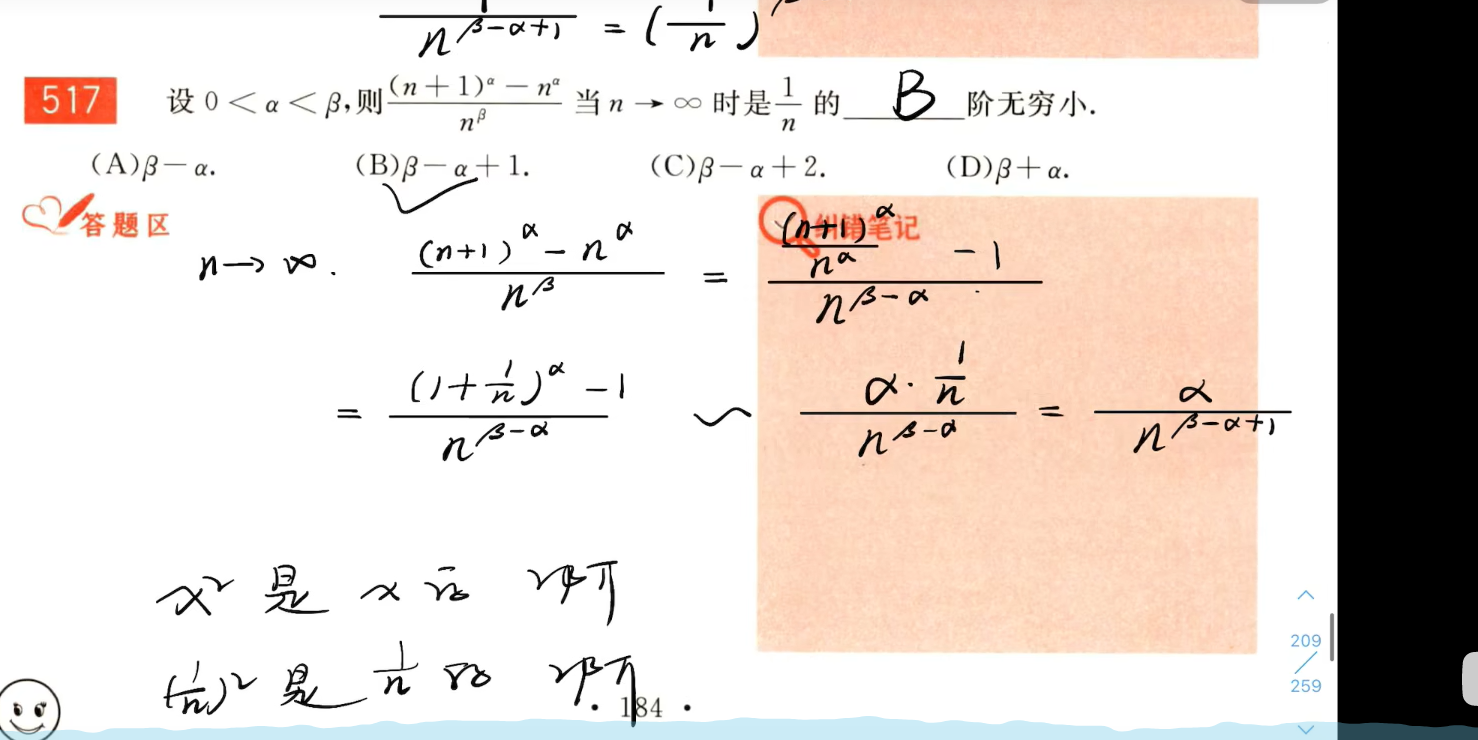 1/n^(β-α+1) = (1/n)
517 设 0 < α < β,则 ((n+1)^α - n^α)/n^β 当 n → ∞ 时是 1/n 的 B 阶无穷小.
(A)β-α. (B)β-α+1. (C)β-α+2. (D)β+α.
答题区
纠错笔记
n→∞. ((n+1)^α - n^α)/n^β = ((n+1)^α/n^α - 1)/n^(β-α)
= ((1+1/n)^α - 1)/n^(β-α) ~ (α·1/n)/n^(β-α) = α/n^(β-α+1)
x² 是 x 的 2阶
(1/n)² 是 1/n 的 2阶
· 184 ·
209
259